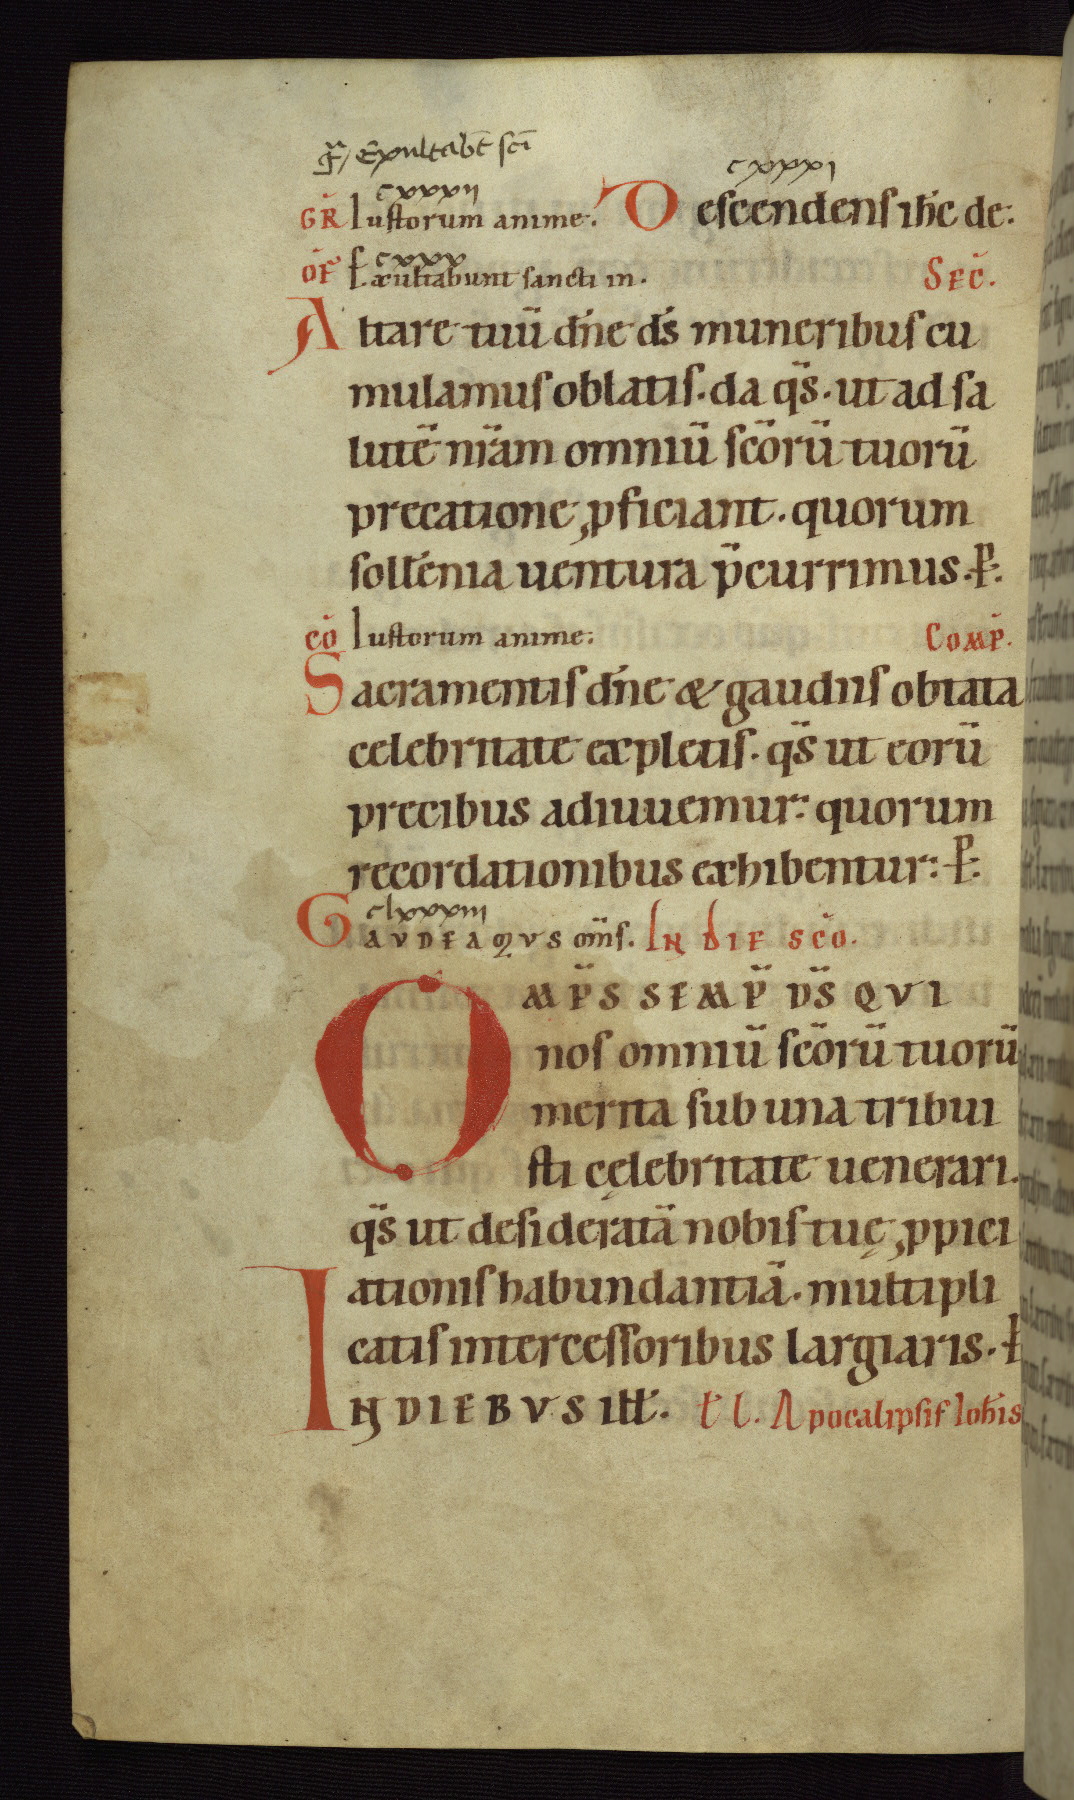 Exultab̄t sc̄i
cxxxii cxxxi
GR̄ Iustorum anime. Descendens ih̄c de:
cxxx
OF̄ Exultabunt sancti in. SEC̄.
Altare tuū dn̄e ds̄ muneribus cu
mulamus oblatis. da qs̄. ut ad sa
lutē nr̄am omniū sc̄orū tuorū
precatione ꝓficiant. quorum
soll̄enia uentura p̄currimus. P̄:
CŌ Iustorum anime: COMP̄.
Sacramentis dn̄e & gaudiis obtata
celebritate expletis. qs̄ ut eorū
precibus adiuuemur: quorum
recordationibus exhibentur: P̄:
clxxxiii
GAVDEAMVS om̄s. IN DIE SC̄O.
OMP̄S SEMP̄ DS̄ QVI
nos omniū sc̄orū tuorū
merita sub una tribui
sti cęlebritate uenerari.
qs̄ ut desideratā nobis tuę ꝓpici
ationis habundantiā. multipli
catis intercessoribus largiaris. P̄
IN DIEBVS ill̄. l̄ l. Apocalipsis Ioh̄is